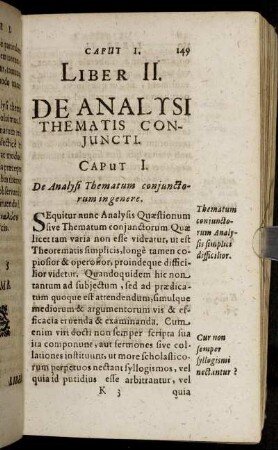 CAPUT I. 149
LIBER II.
DE ANALYSI
THEMATIS CON-
JUNCTI.
CAPUT I.
De Analysi Thematum conjuncto-
rum in genere.
SEquitur nunc Analysis Quæstionum
sive Thematum conjunctorum Quæ
licet tam varia non esse videatur, ut est
Theorematis simplicis, longè tamen co-
piosior & operosior, proindeque diffici-
lior videtur. Quandoquidem hic non
tantum ad subjectum, sed ad prædica-
tum quoque est attendendum, simulque
mediorum & argumentorum vis & ef-
ficacia eruenda & examinanda. Cum
enim viri docti non semper scripta sua
ita componunt, aut sermones sive col-
lationes instituunt, ut more scholastico-
rum perpetuos nectant syllogismos, vel
quia id putidius esse arbitrantur, vel
K 3 quia
Thematum
conjuncto-
rum Analy-
sis simplici
difficilior.
Cur non
semper
syllogismi
nectantur ?